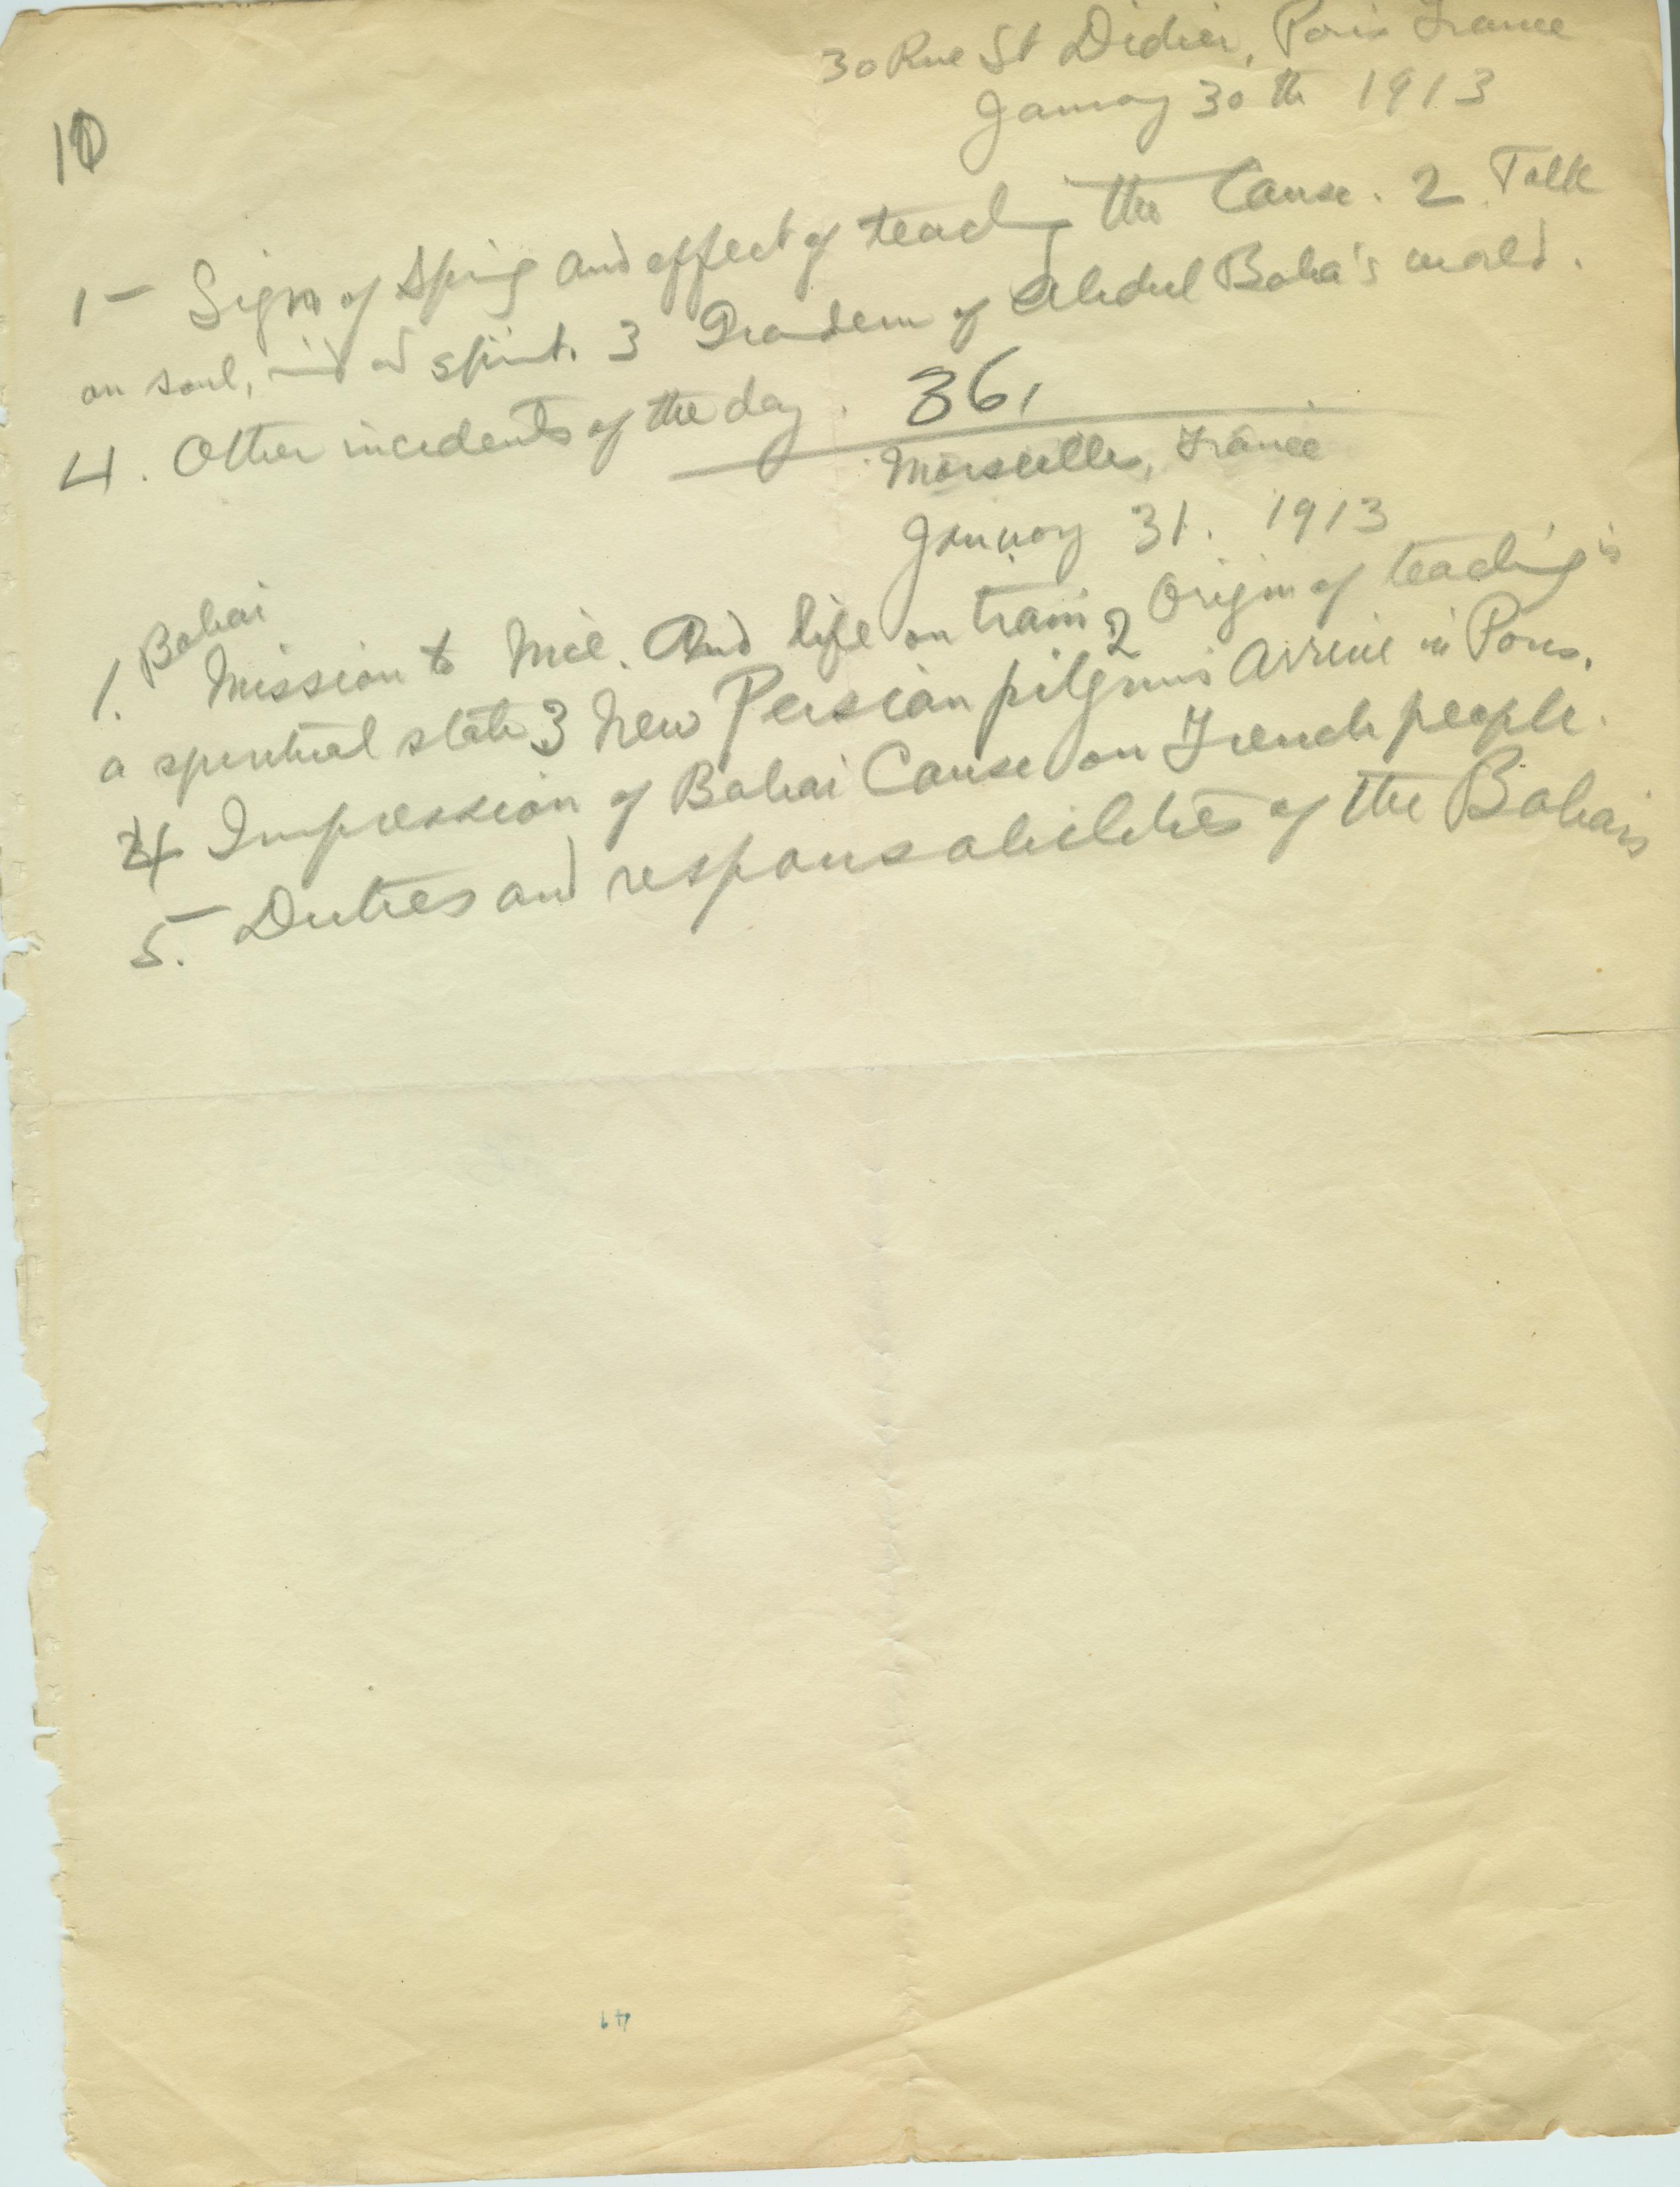 30 Rue St Didier, Paris France
January 30th 1913
10
1- Signs of Spring and effect of teaching the Cause. 2. Talk
on soul, mind and spirit. 3 of Abdul Baha's world.
4. Other incidents of the day.
36,
Marseilles, France
January 31. 1913
1. Bahai Mission to Nice. And life on train 2 Origin of teaching is
a spiritual state 3 New Persian pilgrims Arrive in Paris.
4 Impression of Bahai Cause on French people.
5. Duties and responsabilities of the Bahais
41